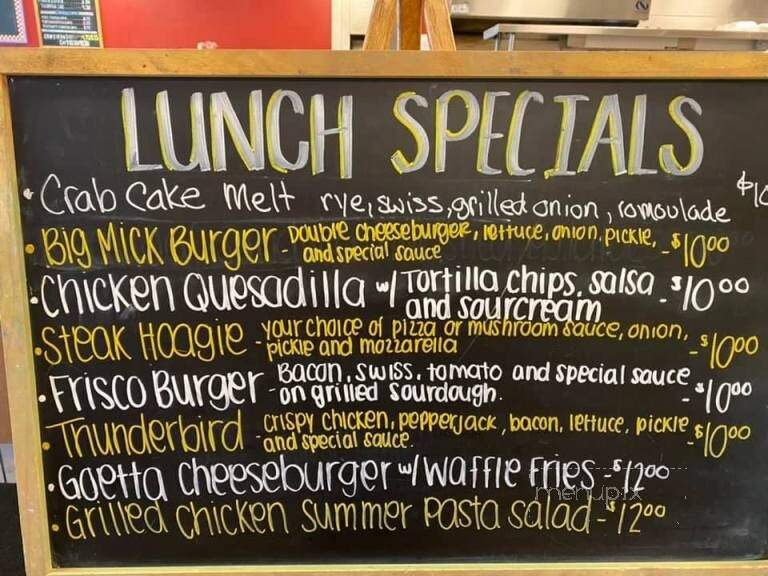 LUNCH SPECIALS
• Crab Cake Melt rye, swiss, grilled onion, romoulade $10
• Big Mick Burger - Double cheeseburger, lettuce, onion, pickle, and special sauce - $10.00
• Chicken Quesadilla w/ Tortilla chips, salsa and sourcream - $10.00
• Steak Hoagie - your choice of pizza or mushroom sauce, onion, pickle and mozzarella - $10.00
• Frisco Burger - Bacon, swiss, tomato and special sauce on grilled sourdough. - $10.00
• Thunderbird - crispy chicken, pepperjack, bacon, lettuce, pickle and special sauce. - $10.00
• Goetta cheeseburger w/ waffle fries - $12.00
• Grilled chicken summer pasta salad - $12.00
menupix